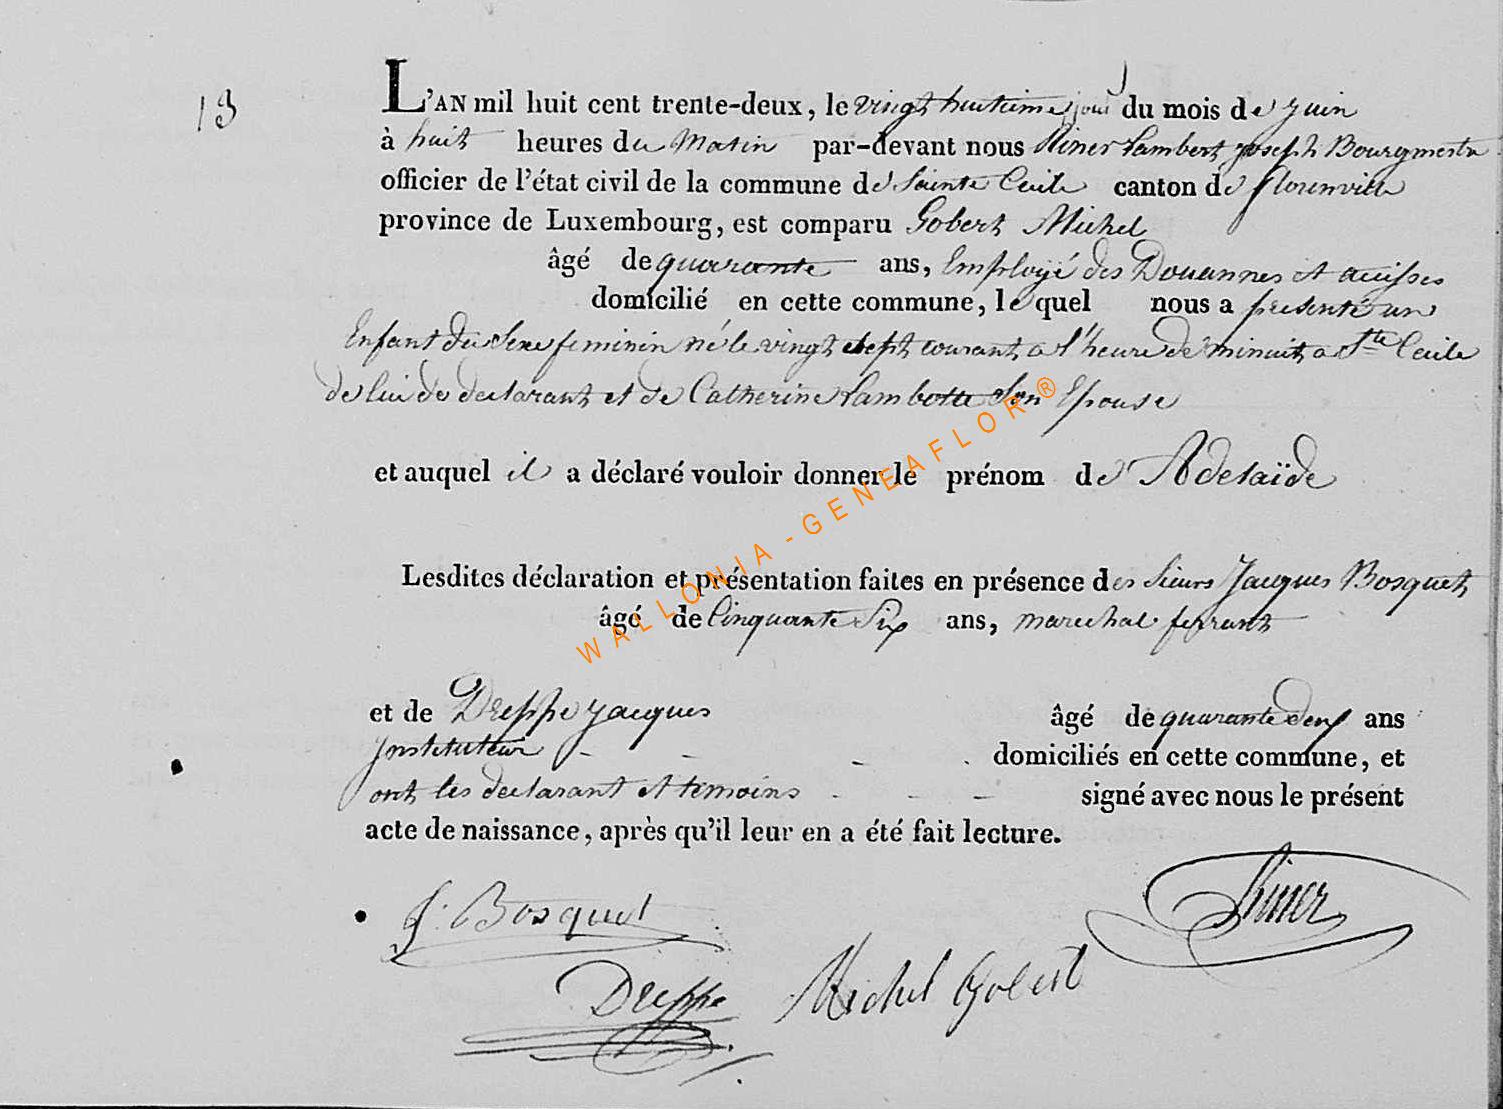 13
L'AN mil huit cent trente-deux, le vingt huitieme jour du mois de juin
à huit heures du Matin par-devant nous Riner Lambert Joseph Bourgmestre
officier de l'état civil de la commune de Sainte Cecile canton de florenville
province de Luxembourg, est comparu Gobert Michel
âgé de quarante ans, Employé des Douannes et accisses
domicilié en cette commune, lequel nous a presenté un
Enfant du sexe feminin né le vingt sept courant a l'heure de minuit a Ste Cecile
de lui de declarant et de Catherine Lambotte Son Epouse
et auquel il a déclaré vouloir donner le prénom de Adelaïde
Lesdites déclaration et présentation faites en présence des Sieurs Jacques Bosquet
âgé de Cinquante Six ans, marechal ferrant
et de Dreppe jacques âgé de quarante deux ans
Instituteur domiciliés en cette commune, et
ont les declarant et temoins signé avec nous le présent
acte de naissance, après qu'il leur en a été fait lecture.
J: Bosquet
Riner
Dreppe
Michel Gobert
WALLONIA-GENEAFLOR®